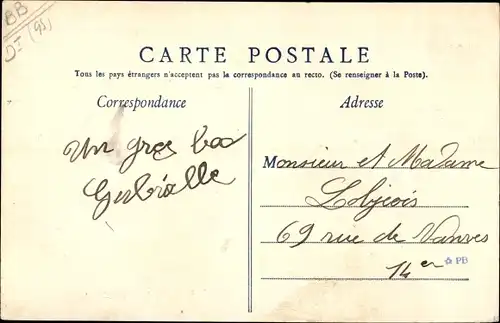 BB
DT (95)
CARTE POSTALE
Tous les pays étrangers n'acceptent pas la correspondance au recto. (Se renseigner à la Poste).
Correspondance
Adresse
Un gros
Monsieur et Madame
69 rue de Vanves
14er
PB